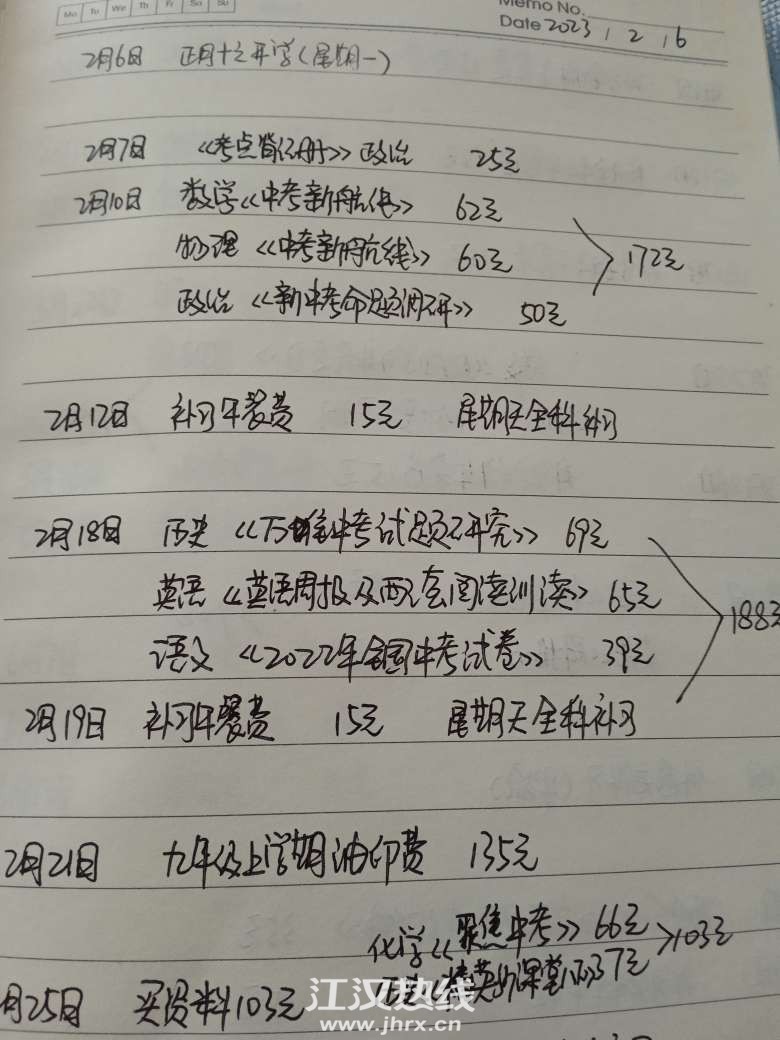 Mo Tu We Th Fr Sa Su
Memo No.
Date 2023 / 2 / 6
2月6日 正月十六开学(星期一)
2月7日 《考点背记册》 政治 25元
2月10日 数学《中考新航线》 62元
物理 《中考新航线》 60元
172元
政治 《新中考命题调研》 50元
2月12日 补习午餐费 15元 星期天全科补习
2月18日 历史 《万唯中考试题研究》 69元
英语《英语周报及两仪会阅读训读》 65元
188元
语文 《2022年全国中考试卷》 39元
2月19日 补习午餐费 15元 星期天全科补习
2月21日 九年级上学期油印费 135元
化学《聚焦中考》 66元
103元
历史《精英新课堂》37元
月25日 买资料103元
江汉热线
www.jhrx.cn